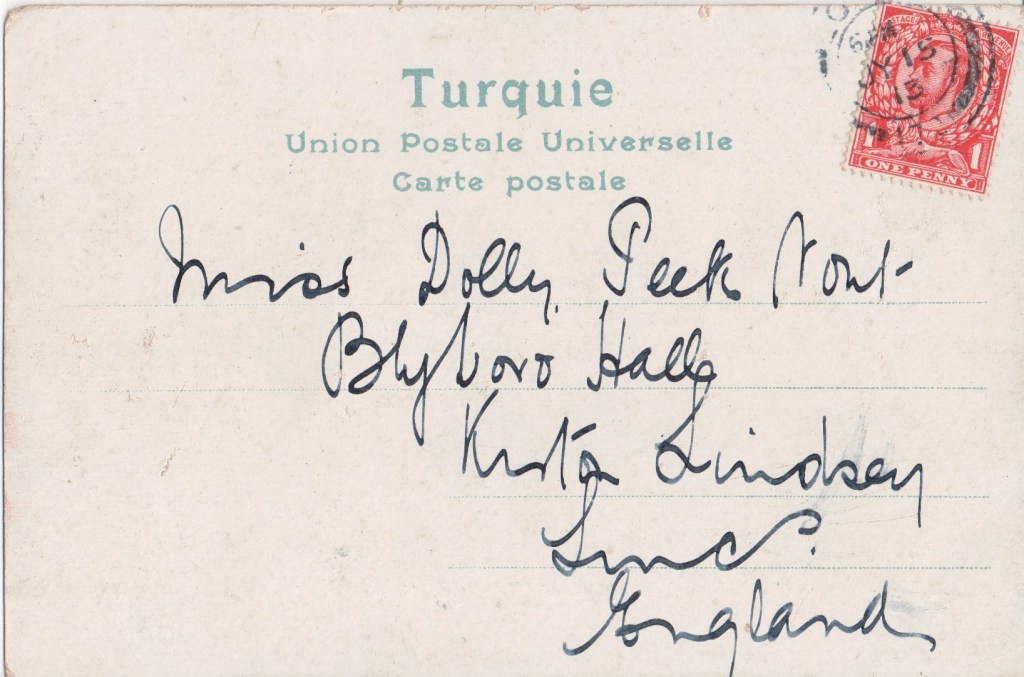 Turquie
Union Postale Universelle
Carte postale
Miss Dolly Peek
Blyboro Hall
Kirton Lindsey
Linc.
England
POSTAGE REVENUE
JY 15
13
1 1
ONE PENNY